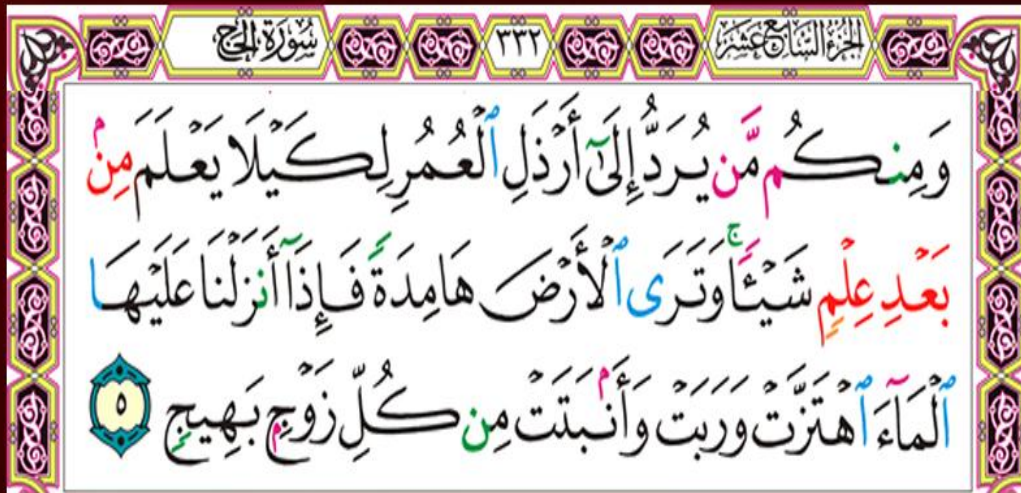 الجُزْءُ السَّابِعَ عَشَرَ ٣٣٢ سُورَةُ الحَجِّ
وَمِنكُم مَّن يُرَدُّ إِلَىٰٓ أَرْذَلِ ٱلْعُمُرِ لِكَيْلَا يَعْلَمَ مِنۢ
بَعْدِ عِلْمٍ شَيْـًٔا ۚ وَتَرَى ٱلْأَرْضَ هَامِدَةً فَإِذَآ أَنزَلْنَا عَلَيْهَا
ٱلْمَآءَ ٱهْتَزَّتْ وَرَبَتْ وَأَنۢبَتَتْ مِن كُلِّ زَوْجٍۭ بَهِيجٍ ٥